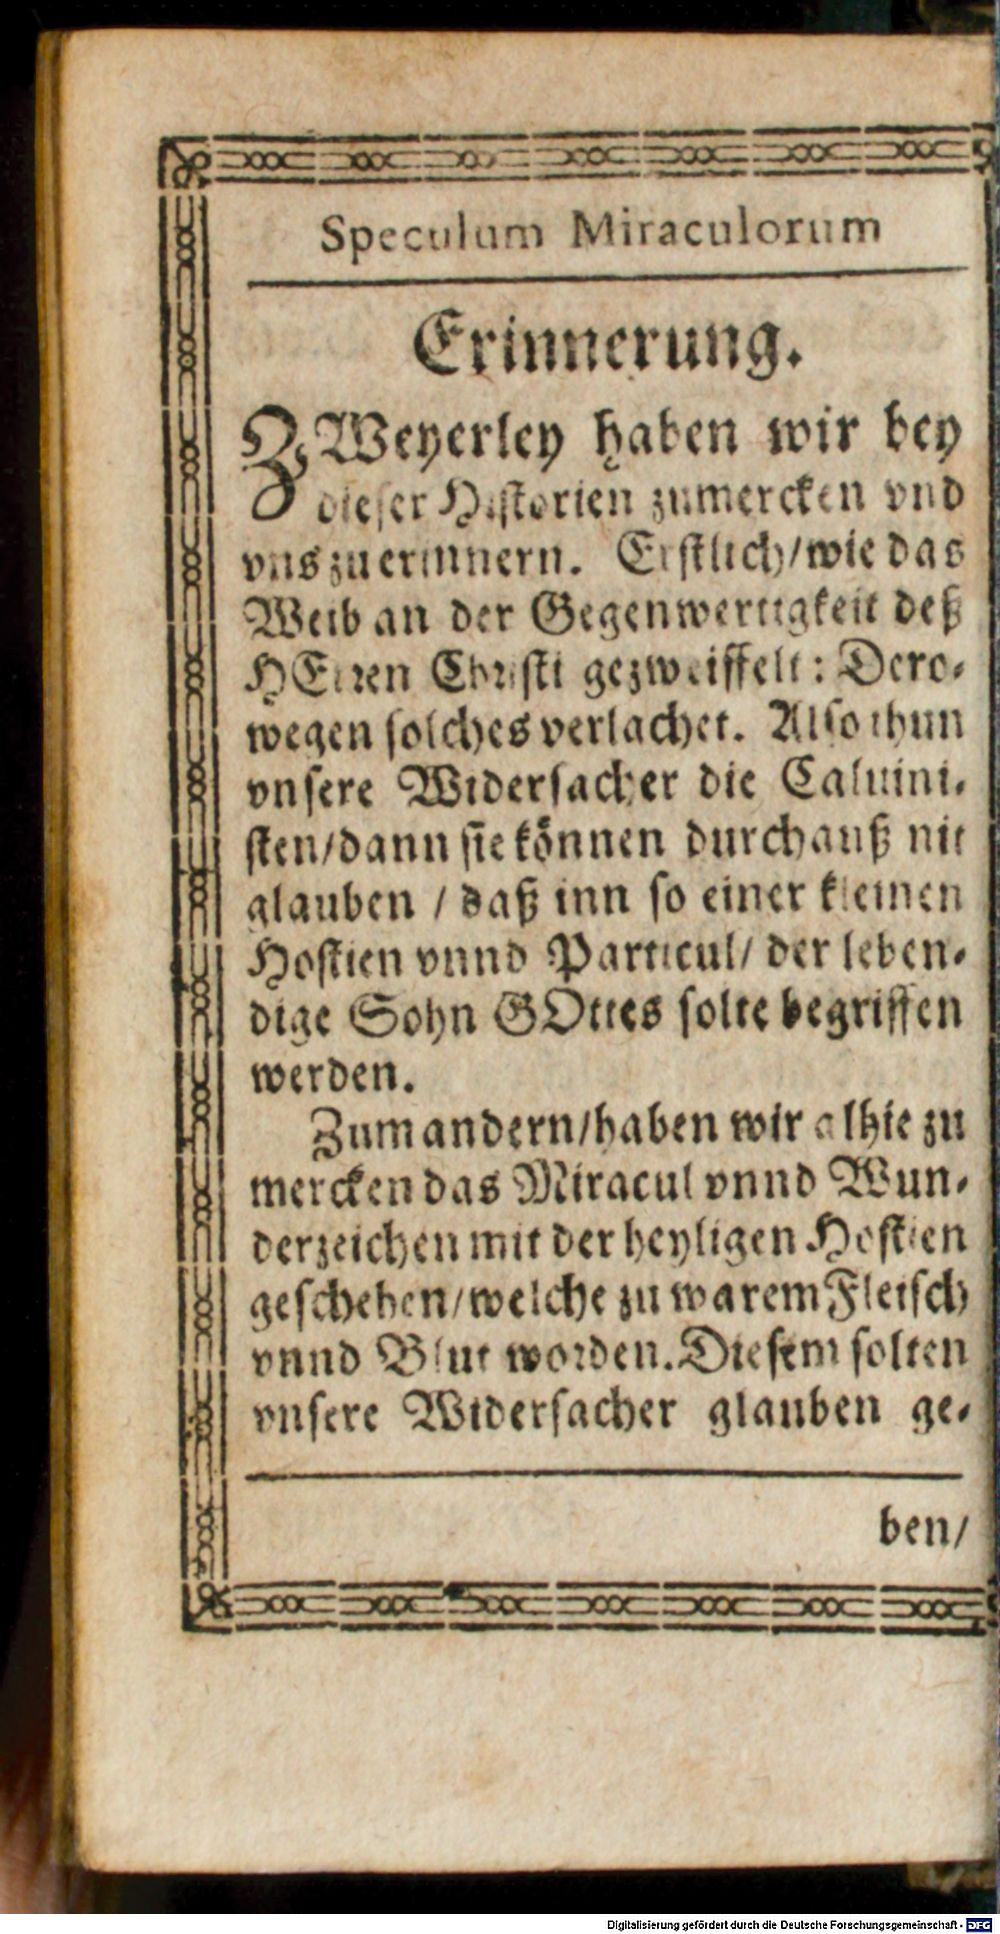 Speculum Miraculorum
Erinnerung.
ZWeyerley haben wir bey
dieser Historien zumercken vnd
vns zu erinnern. Erstlich/ wie das
Weib an der Gegenwertigkeit deß
HErren Christi gezweiffelt: Dero-
wegen solches verlachet. Also thun
vnsere Widersacher die Caluini-
sten/ dann sie können durchauß nit
glauben / daß inn so einer kleinen
Hostien vnnd Particul/ der leben-
dige Sohn GOttes solte begriffen
werden.
Zum andern/ haben wir alhie zu
mercken das Miracul vnnd Wun-
derzeichen mit der heyligen Hostien
geschehen/ welche zu warem Fleisch
vnnd Blut worden. Diesem solten
vnsere Widersacher glauben ge-
ben/
Digitalisierung gefördert durch die Deutsche Forschungsgemeinschaft - DFG